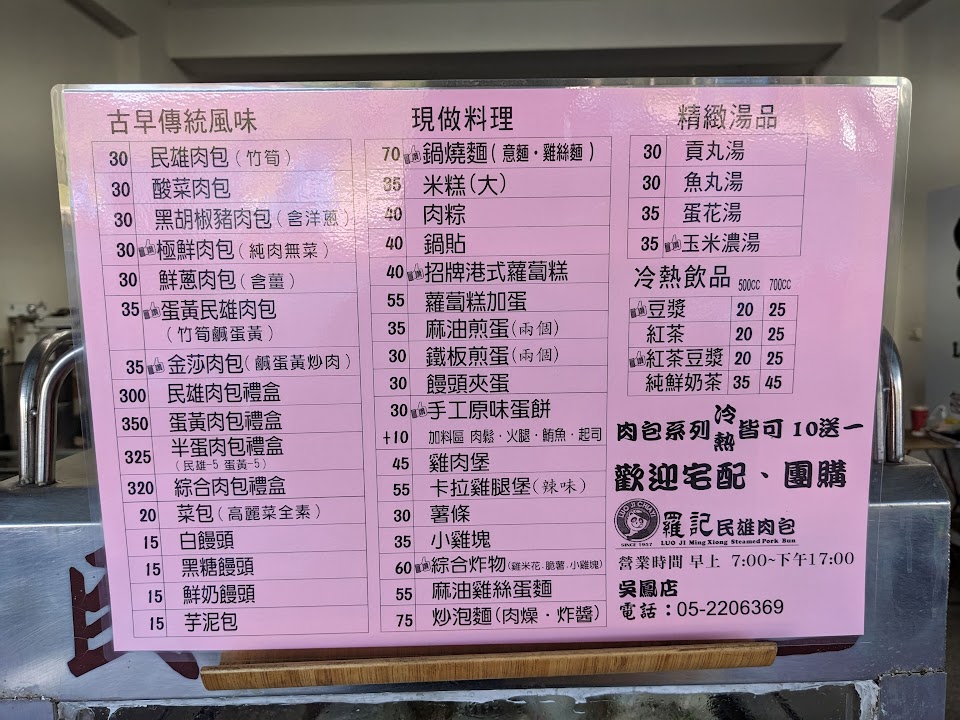 古早傳統風味
30 民雄肉包(竹筍)
30 酸菜肉包
30 黑胡椒豬肉包(含洋蔥)
30 極鮮肉包(純肉無菜)
30 鮮蔥肉包(含薑)
35 蛋黃民雄肉包
(竹筍鹹蛋黃)
35 金莎肉包(鹹蛋黃炒肉)
300 民雄肉包禮盒
350 蛋黃肉包禮盒
325 半蛋肉包禮盒
(民雄-5 蛋黃-5)
320 綜合肉包禮盒
20 菜包(高麗菜全素)
15 白饅頭
15 黑糖饅頭
15 鮮奶饅頭
15 芋泥包
現做料理
70 鍋燒麵(意麵・雞絲麵)
35 米糕(大)
40 肉粽
40 鍋貼
40 招牌港式蘿蔔糕
55 蘿蔔糕加蛋
35 麻油煎蛋(兩個)
30 鐵板煎蛋(兩個)
30 饅頭夾蛋
30 手工原味蛋餅
+10 加料區 肉鬆・火腿・鮪魚・起司
45 雞肉堡
55 卡拉雞腿堡(辣味)
30 薯條
35 小雞塊
60 綜合炸物(雞米花.脆薯.小雞塊)
55 麻油雞絲蛋麵
75 炒泡麵(肉燥・炸醬)
精緻湯品
30 貢丸湯
30 魚丸湯
35 蛋花湯
35 玉米濃湯
冷熱飲品 500cc 700cc
豆漿 20 25
紅茶 20 25
紅茶豆漿 20 25
純鮮奶茶 35 45
肉包系列冷熱皆可10送一
歡迎宅配、團購
羅記民雄肉包
LUO JI Ming Xiong Steamed Pork Bun
SINCE 1957
營業時間 早上 7:00~下午17:00
吳鳳店
電話:05-2206369